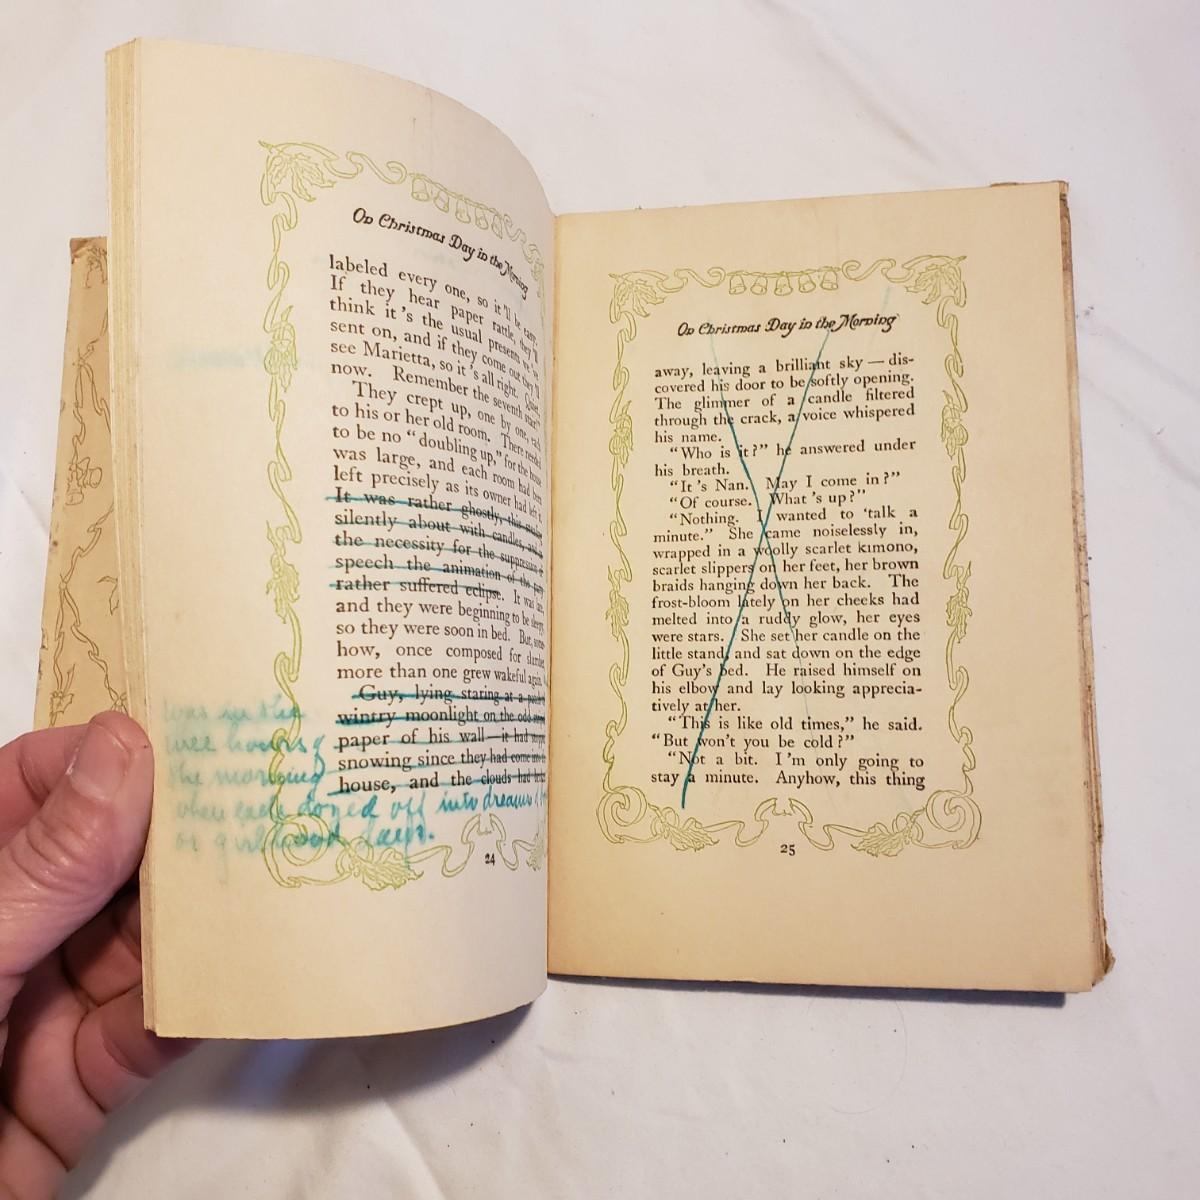 On Christmas Day in the Morning
labeled every one, so it'll be easy.
If they hear paper rattle, they'll
think it's the usual presents we've
sent on, and if they come out they'll
see Marietta, so it's all right. Quiet,
now. Remember the seventh stair!"
They crept up, one by one, each
to his or her old room. There needed
to be no "doubling up," for the house
was large, and each room had been
left precisely as its owner had left it.
It was rather ghostly, this
silently about with candles, and
the necessity for the suppression of
speech the animation of the party
rather suffered eclipse. It was late,
and they were beginning to be sleepy,
so they were soon in bed. But, some-
how, once composed for slumber
more than one grew wakeful again.
Guy, lying staring at a patch of
wintry moonlight on the odd
paper of his wall—it had stopped
snowing since they had come into the
house, and the clouds had broken
was in the
wee hours of
the morning
when each dozed off into dreams of boy
or girlhood days.
24
On Christmas Day in the Morning
away, leaving a brilliant sky — dis-
covered his door to be softly opening.
The glimmer of a candle filtered
through the crack, a voice whispered
his name.
"Who is it?" he answered under
his breath.
"It's Nan. May I come in?"
"Of course. What's up?"
"Nothing. I wanted to 'talk a
minute." She came noiselessly in,
wrapped in a woolly scarlet kimono,
scarlet slippers on her feet, her brown
braids hanging down her back. The
frost-bloom lately on her cheeks had
melted into a ruddy glow, her eyes
were stars. She set her candle on the
little stand, and sat down on the edge
of Guy's bed. He raised himself on
his elbow and lay looking apprecia-
tively at her.
"This is like old times," he said.
"But won't you be cold?"
"Not a bit. I'm only going to
stay a minute. Anyhow, this thing
25